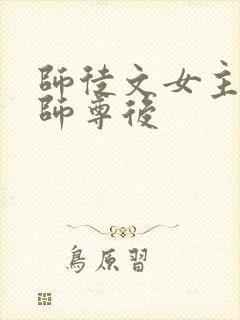 師徒文女主
師尊後
鳥原習